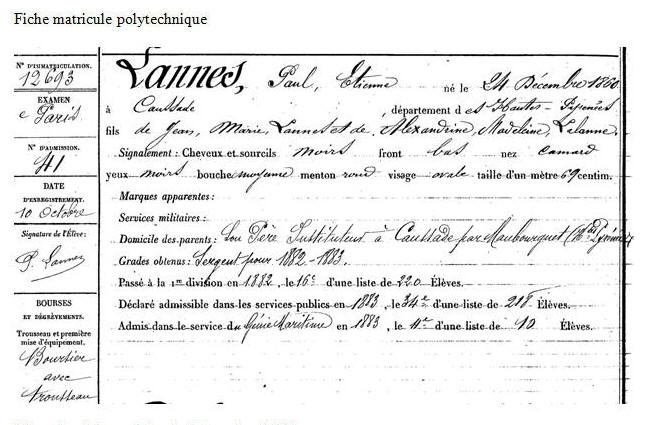 Fiche matricule polytechnique
N° D'IMMATRICULATION.
12693
EXAMEN
e Paris
N° D'ADMISSION.
41
DATE
D'ENREGISTREMENT.
10 Octobre
Signature de l'Élève:
P. Lannes
BOURSES
ET DÉGRÈVEMENTS.
Trousseau et première
mise d'équipement.
Boursier
avec
Trousseau
Lannes, Paul, Etienne né le 24 Décembre 1860
à Caussade, département des Hautes-Pyrénées
fils de Jean, Marie, Lannes et de Alexandrine, Madeleine, Lalanne.
Signalement: Cheveux et sourcils noirs front bas nez camard
yeux noirs bouche moyenne menton rond visage ovale taille d'un mètre 69 centim.
Marques apparentes:
Services militaires:
Domicile des parents: Son Père Instituteur à Caussade par Maubourguet (Htes Pyrénées)
Grades obtenus: Sergent pour 1882-1883.
Passé à la 1re division en 1882, le 16e d'une liste de 220 Élèves.
Déclaré admissible dans les services publics en 1883, le 34e d'une liste de 218 Élèves.
Admis dans le service du Génie Maritime en 1883, le 4e d'une liste de 10 Élèves.